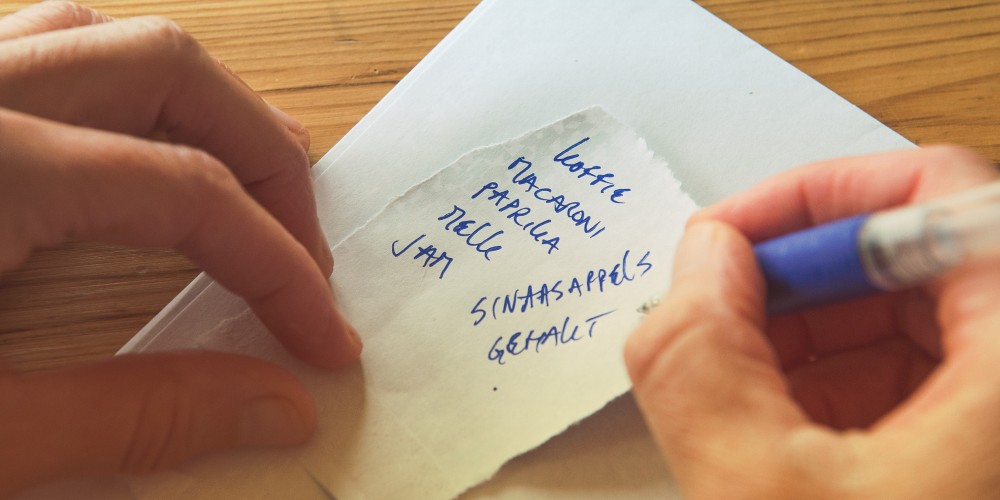 KOFFIE
MACARONI
PAPRIKA
MELK
JAM
SINAASAPPELS
GEHAKT